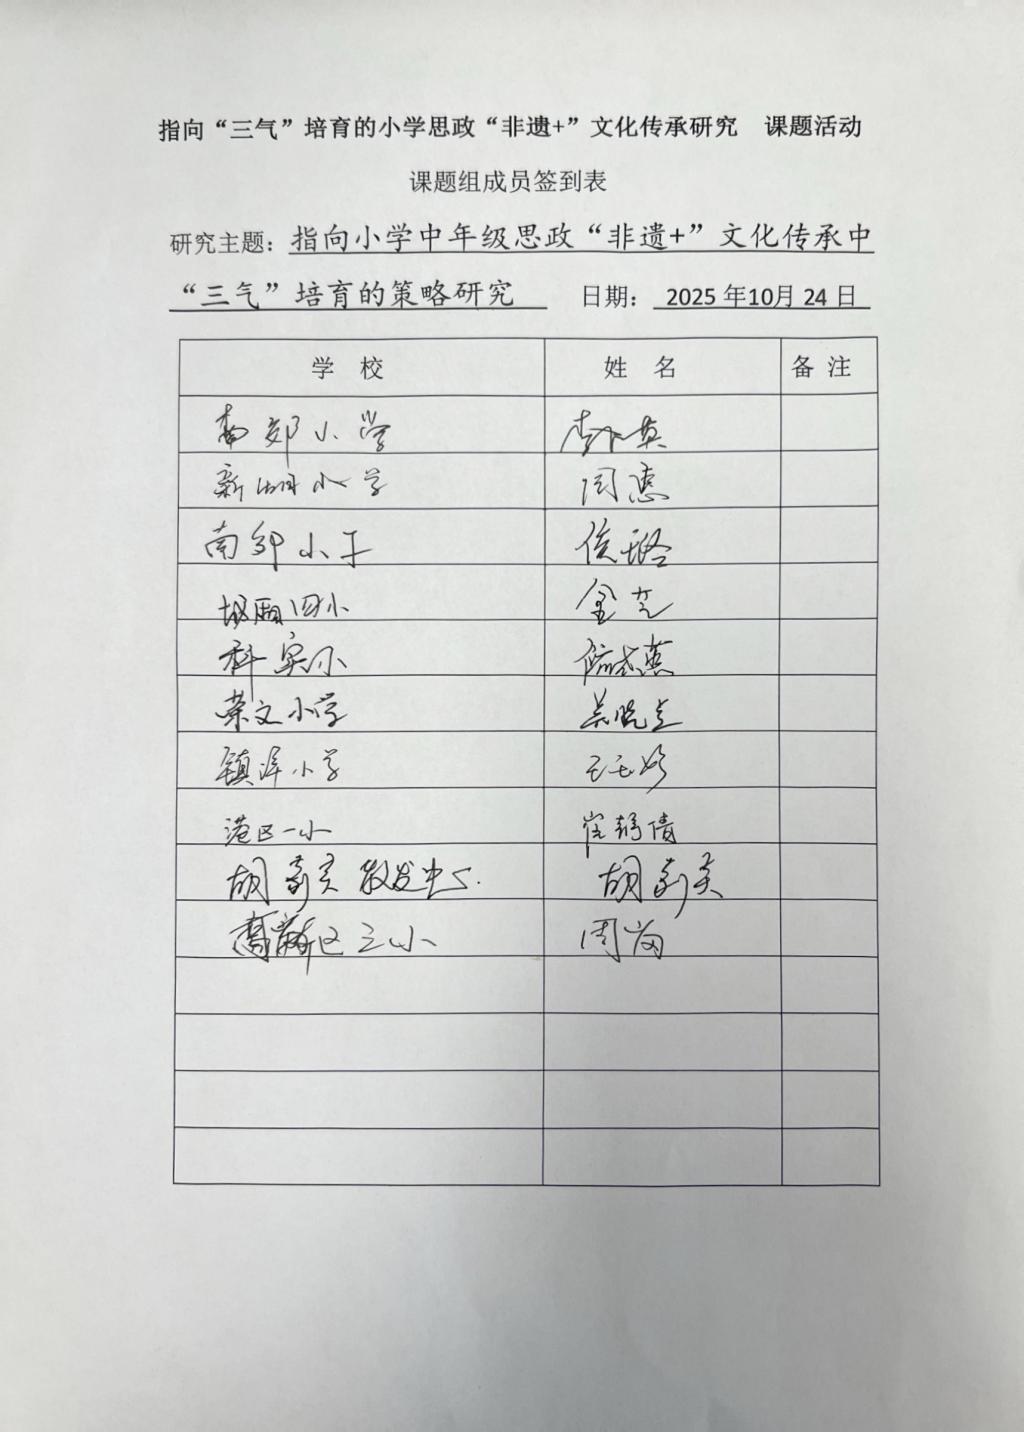 指向“三气”培育的小学思政“非遗+”文化传承研究 课题活动
课题组成员签到表
研究主题：指向小学中年级思政“非遗+”文化传承中
“三气”培育的策略研究 日期： 2025 年10月 24 日
学 校 姓 名 备 注
南郊小学
新湖小学 闵惠
南郊小学 侯璐
城厢四小 金芝
科实小
荣文小学 吴晓
镇洋小学 王
港区一小 崔静倩
胡 教发中心 胡
高新区三小 周